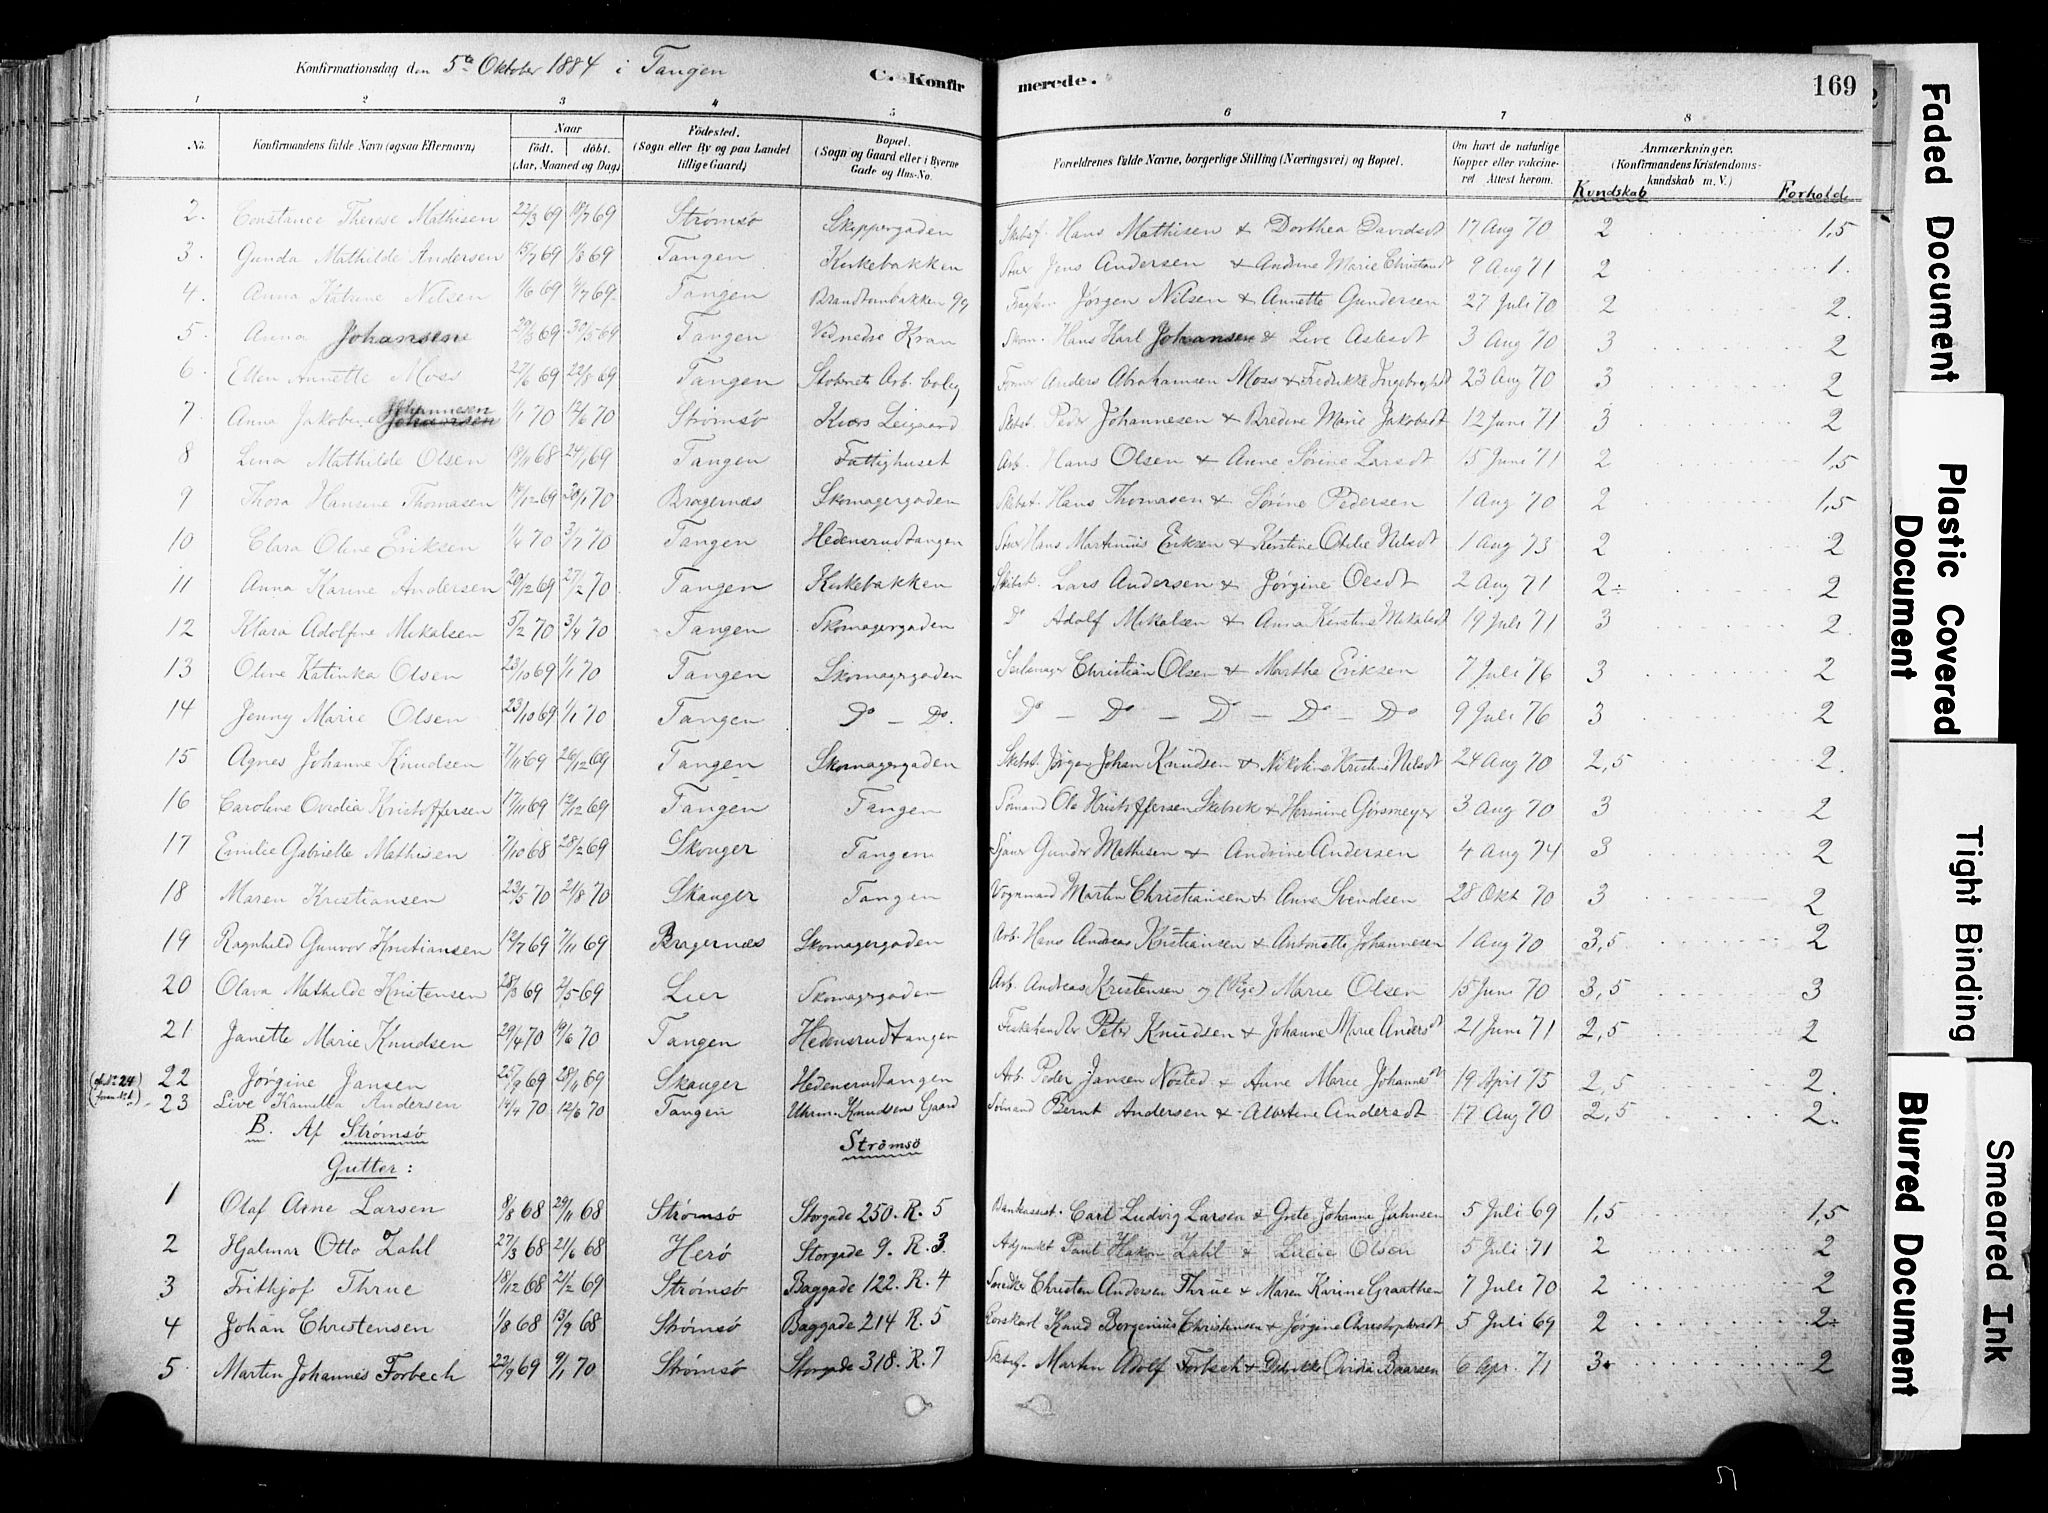 Konfirmationsdag den 5te Oktober 1884 i Tangen C. Konfir merede. 169
1 2 3 4 5 6 7 8
No. Konfirmandens fulde Navn (ogsaa Efternavn) Naar født. døbt. (Aar, Maaned og Dag) Fødested. (Sogn eller By og paa Landet tillige Gaard) Bopæl. (Sogn og Gaard eller i Byerne Gade og Hus-No. Forældrenes fulde Navne, borgerlige Stilling (Næringsvei) og Bopæl. Om havt de naturlige Kopper eller vakcineret Attest herom. Anmærkninger. (Konfirmandens Kristendomskundskab m. V.) Kundskab Forhold
2. Constance Therese Mathisen 22/3 69 18/7 69 Strømsø Skippergaden Hans Mathisen & Dorthea Davidsdt 17 Aug 70 2 1,5
3. Gunda Mathilde Andersen 15/7 69 1/8 69 Tangen Kirkebakken Stuer Jens Andersen & Andrine Marie Christiansdt 9 Aug 71 2 1.
4. Anna Katrine Nilsen 1/6 69 69 Tangen Jørgen Nilsen & Annette Gundersen 27 Juli 70 2 2.
5. Anna Johansen 29/3 69 30/5 69 Tangen Ved nedre Kran Skom. Hans Karl Johansen & Live Asbsdt 3 Aug 70 3 2
6 Ellen Annette Moss 27/6 69 22/8 69 Tangen Arb. bolig Anders Abrahamsen Moss & Fredrikke Ingebrigtsdt 23 Aug 70 3 2
7 Anna Jakobine Johannesen 1/1 70 12/6 70 Strømsø Peder Johannesen & Bredine Marie Jakobsdt 12 Juni 71 3 2
8 Lina Mathilde Olsen 19/11 68 24/1 69 Tangen Fattighuset Arb. Hans Olsen & Anne Sørine Larsdt 15 Juni 71 2 1,5
9 Thora Hansine Thomasen 69 30/1 70 Bragernæs Skomagergaden Skibst. Hans Thomasen & Sørine Pedersen 1 Aug 70 2 1,5
10 Clara Oline Eriksen 1/4 70 3/7 70 Tangen Hedensrudtangen Stuer Hans Martinius Eriksen & Kirstine Otilie Nilsdt 1 Aug 73 2 2
11 Anna Karine Andersen 20/12 69 27/2 70 Tangen Kirkebakken Skibst. Lars Andersen & Jørgine Olsdt 2 Aug 71 2÷ 2
12 Klara Adolfine Mikalsen 5/2 70 3/4 70 Tangen Skomagergaden Do Adolf Mikalsen & Anna Kirstine Mikalsdt 19 Juli 71 3 2.
13 Oline Katinka Olsen 23/10 69 1/1 70 Tangen Skomagergaden Seilmager Christian Olsen & Marthe Eriksen 7 Juli 76 3 2
14 Jenny Marie Olsen 23/10 69 1/1 70 Tangen Do – Do. Do – Do – Do – Do – Do 9 Juli 76 3 2
15 Agnes Johanne Knudsen 7/11 69 26/12 69 Tangen Skomagergaden Skibst. Jørgen Johan Knudsen & Nikoline Kristine Nilsdt 24 Aug 70 2,5 2.
16 Caroline Ovidia Kristoffersen 17/11 69 12/12 69 Tangen Tangen Sømand Ole Kristoffersen Skibvik & Hermine Gørsmeyer 3 Aug 70 3 2
17 Emilie Gabrielle Mathisen 7/10 68 28/2 69 Skouger Tangen Sjauer Gunder Mathisen & Andrine Andersen 4 Aug 74 3 2
18 Maren Kristiansen 23/5 70 21/8 70 Skauger Tangen Vognmand Martin Christiansen & Anne Svendsen 28 Okt 70 3 2
19 Ragnhild Gunvor Kristiansen 12/7 69 7/11 69 Bragernæs Skomagergaden Arb. Hans Andreas Kristiansen & Antonette Johannesen 1 Aug 70 3,5 2
20 Olava Mathilde Kristensen 28/3 69 2/5 69 Lier Skomagergaden Arb. Andreas Kristensen og (Pige) Marie Olsen 15 Juni 70 3,5 3
21 Janette Marie Knudsen 29/4 70 19/6 70 Tangen Hedensrudtangen Fiskehandler Peter Knudsen & Johanne Marie Andersdt 21 Juni 71 2,5 2
22 Jørgine Jansen 25/9 69 28/11 69 Skauger Hedensrudtangen Arb. Peder Jansen Nøsted & Anne Marie Johannesdt 19 April 75 2,5 2.
(No. 24 foran No. 1.) 23 Live Kamilla Andersen 14/4 70 12/6 70 Tangen Uhrm. Knudsens Gaard Sømand Bernt Andersen & Albertine Andersdt 17 Aug 70 2,5 2.
B. Af Strømsø Strømsö
Gutter:
1 Olaf Arne Larsen 8/8 68 29/11 68 Strømsö Storgade 250. R. 5 Bankassist. Carl Ludvig Larsen & Grete Johanne Jahnsen 5 Juli 69 1,5 1,5
2 Hjalmar Otto Zahl 27/3 68 21/6 68 Herö Storgade 9. R. 3. Adjunkt Paul Hakon Zahl & Lucie Olsen 5 Juli 71 2 2
3 Frithjof Thrue 18/12 68 21/2 69 Strømsö Baggade 122. R. 4 Snedker Christen Andersen Thrue & Maren Karine Graathen 7 Juli 70 2 2
4 Johan Christensen 1/8 68 13/9 68 Strømsö Baggade 214 R. 5 Knud Borgenius Christensen & Jørgine Christophersdt 5 Juli 69 2 2÷
5 Martin Johannes Forbech 22/9 69 9/1 70 Strømsö Storgade 318. R. 7 Martin Adolf Forbech & Ovidia Baarsen 6 Apr. 71 3 2
Faded Document
Plastic Covered Document
Tight Binding
Blurred Document
Smeared Ink